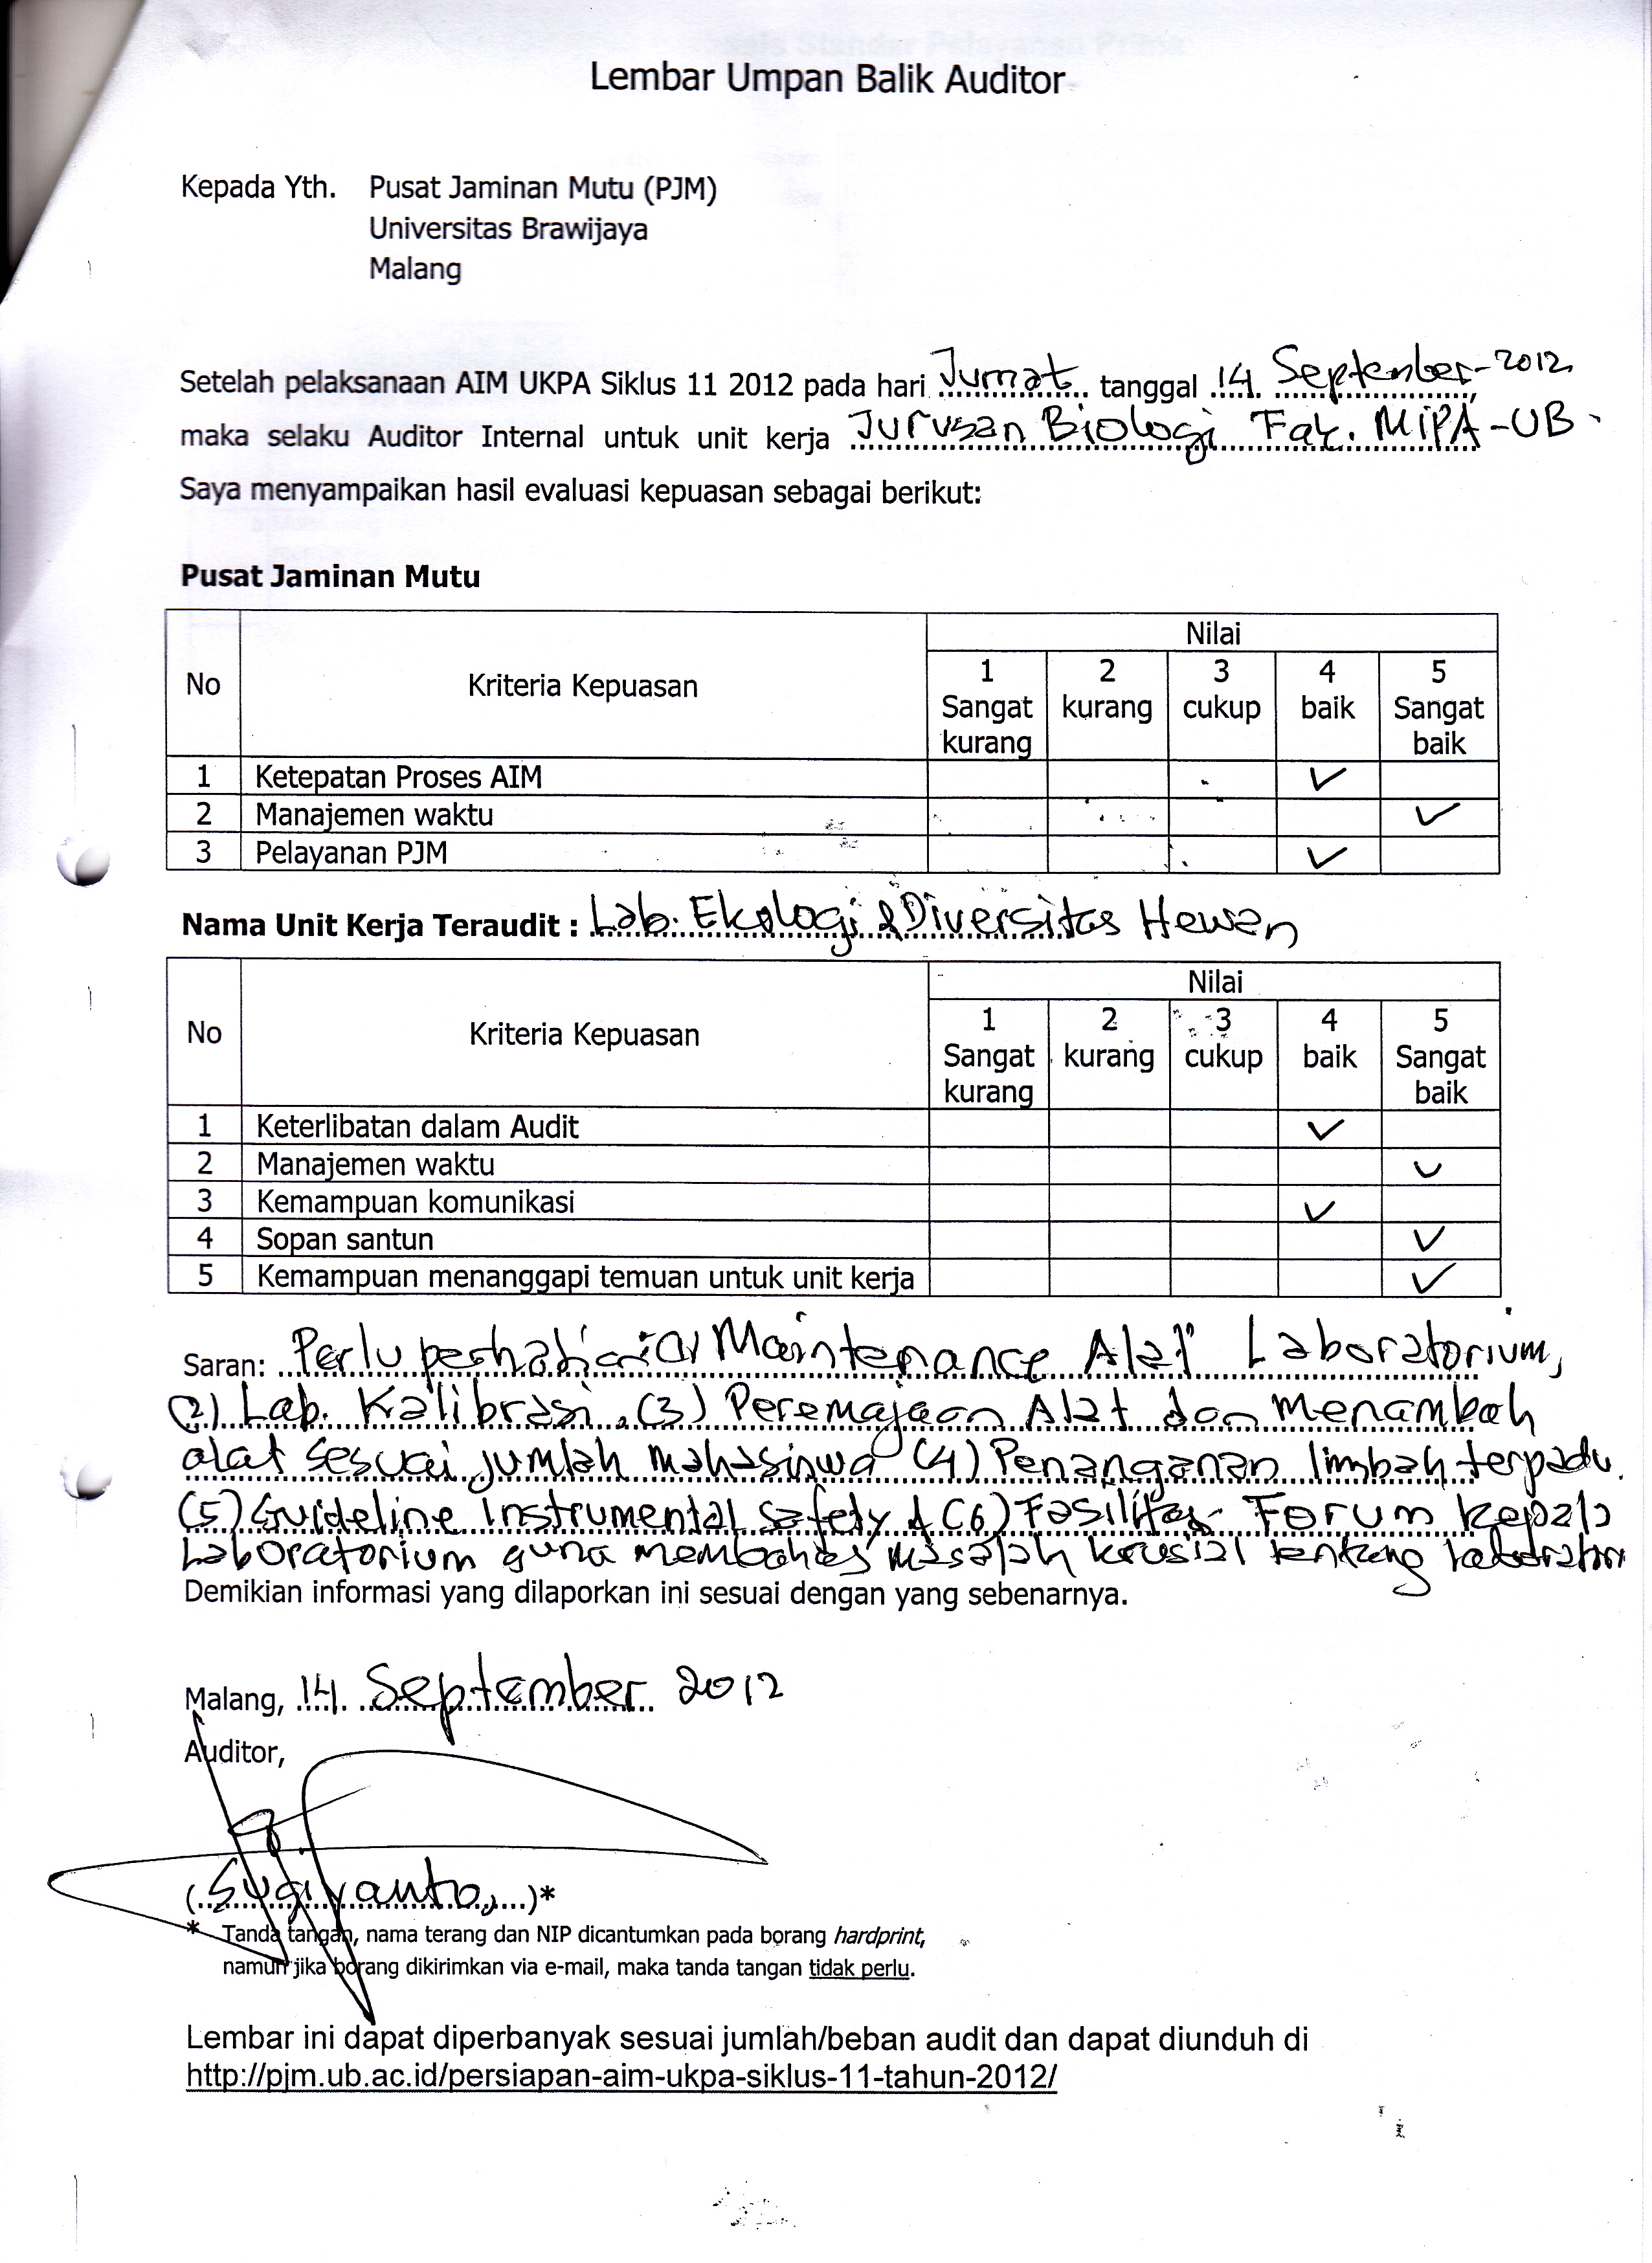 Lembar Umpan Balik Auditor
Kepada Yth. Pusat Jaminan Mutu (PJM)
Universitas Brawijaya
Malang
Setelah pelaksanaan AIM UKPA Siklus 11 2012 pada hari Jumat tanggal 14 September 2012
maka selaku Auditor Internal untuk unit kerja Jurusan Biologi Fak. MIPA-UB
Saya menyampaikan hasil evaluasi kepuasan sebagai berikut:
Pusat Jaminan Mutu
No Kriteria Kepuasan Nilai
1 Sangat kurang 2 kurang 3 cukup 4 baik 5 Sangat baik
1 Ketepatan Proses AIM ✓
2 Manajemen waktu ✓
3 Pelayanan PJM ✓
Nama Unit Kerja Teraudit : Lab. Ekologi & Diversitas Hewan
No Kriteria Kepuasan Nilai
1 Sangat kurang 2 kurang 3 cukup 4 baik 5 Sangat baik
1 Keterlibatan dalam Audit ✓
2 Manajemen waktu ✓
3 Kemampuan komunikasi ✓
4 Sopan santun ✓
5 Kemampuan menanggapi temuan untuk unit kerja ✓
Saran: Perlu perhatian Maintenance Alat Laboratorium,
(2) Lab. Kalibrasi, (3) Peremajaan Alat dan menambah
alat sesuai jumlah mahasiswa (4) Penanganan limbah terpadu.
(5) Guideline Instrumental Safety & (6) Fasilitas Forum kepala
Laboratorium guna membahas masalah krusial tentang
Demikian informasi yang dilaporkan ini sesuai dengan yang sebenarnya.
Malang, 14 September 2012
Auditor,
(Sugiyanto,)*
* Tanda tangan, nama terang dan NIP dicantumkan pada borang hardprint,
namun jika borang dikirimkan via e-mail, maka tanda tangan tidak perlu.
Lembar ini dapat diperbanyak sesuai jumlah/beban audit dan dapat diunduh di
http://pjm.ub.ac.id/persiapan-aim-ukpa-siklus-11-tahun-2012/